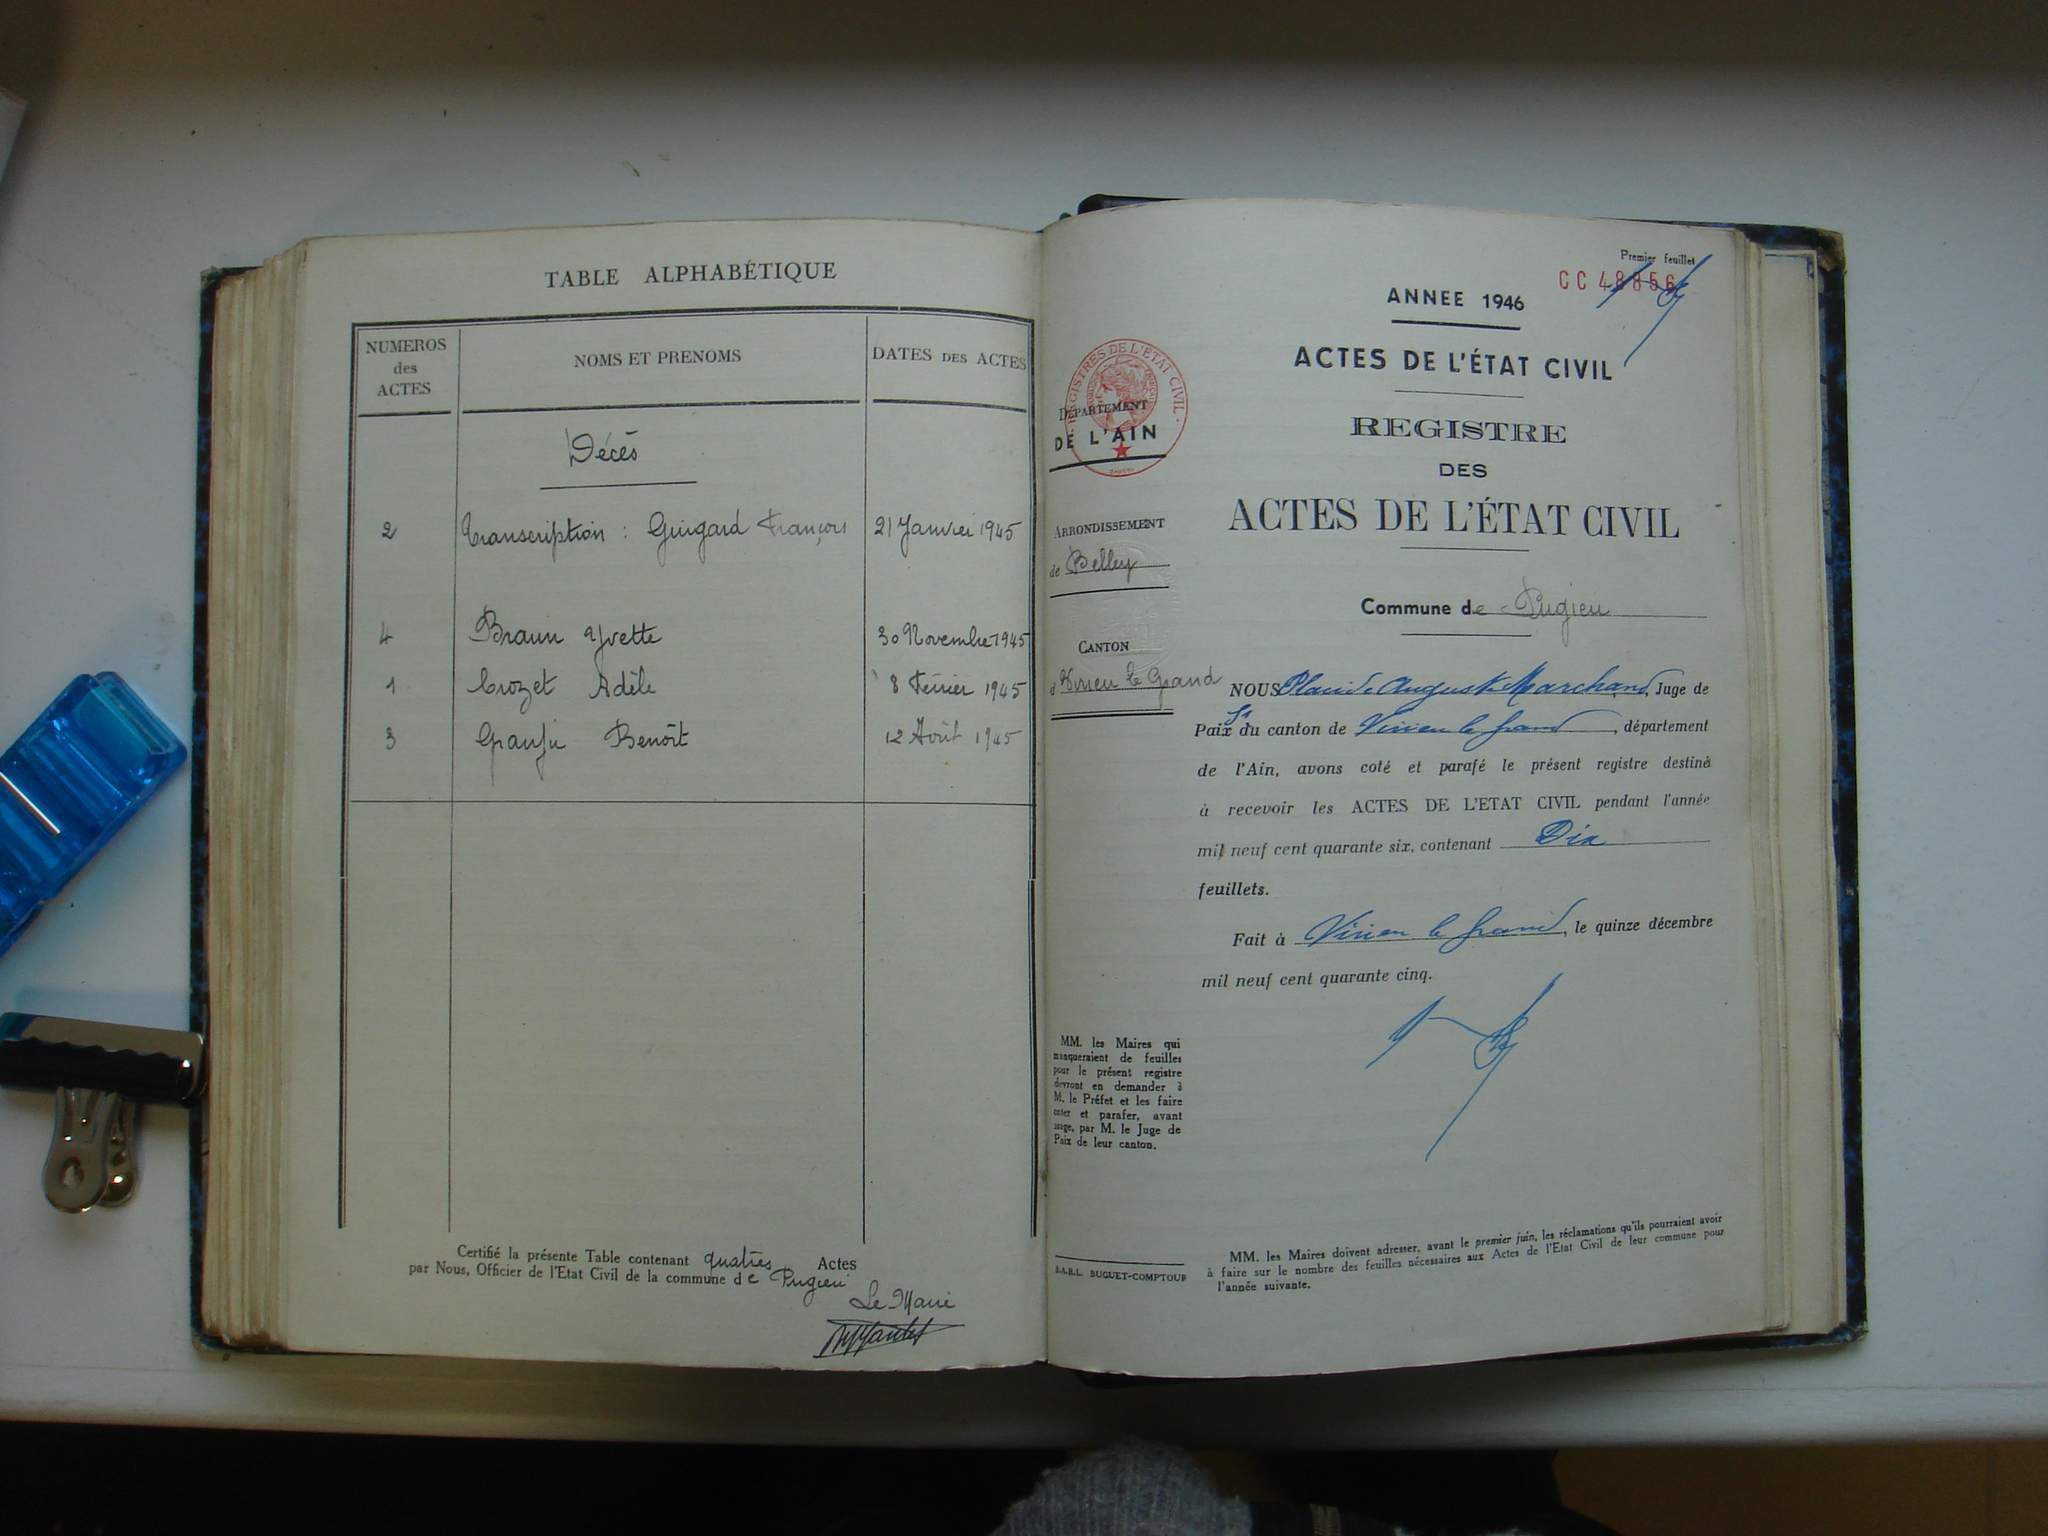 TABLE ALPHABÉTIQUE
NUMEROS
des
ACTES
NOMS ET PRENOMS
DATES DES ACTES
Décés
2 Transcription : Guigard François 21 Janvier 1945
4 Braun Yvette 30 Novembre 1945
1 Crozet Adèle 8 Février 1945
3 Granju Benoît 12 Août 1945
Certifié la présente Table contenant quatres Actes
par Nous, Officier de l'Etat Civil de la commune de Pugieu
Le Maire
Premier feuillet
CC 48856
ANNEE 1946
ACTES DE L'ÉTAT CIVIL
REGISTRES DE L'ÉTAT CIVIL
DÉPARTEMENT
DE L'AIN
REGISTRE
DES
ACTES DE L'ÉTAT CIVIL
ARRONDISSEMENT
de Belley
Commune de Pugieu
CANTON
d Virieu le Grand
NOUS Placide Auguste Marchand, Juge de
Paix du canton de Virieu le Grand, département
de l'Ain, avons coté et parafé le présent registre destiné
à recevoir les ACTES DE L'ETAT CIVIL pendant l'année
mil neuf cent quarante six, contenant Dix
feuillets.
Fait à Virieu le Grand, le quinze décembre
mil neuf cent quarante cinq.
MM. les Maires qui
manqueraient de feuilles
pour le présent registre
devront en demander à
M. le Préfet et les faire
coter et parafer, avant
usage, par M. le Juge de
Paix de leur canton.
S.A.R.L. BUGUET-COMPTOUR
MM. les Maires doivent adresser, avant le premier juin, les réclamations qu'ils pourraient avoir
à faire sur le nombre des feuilles nécessaires aux Actes de l'Etat Civil de leur commune pour
l'année suivante.